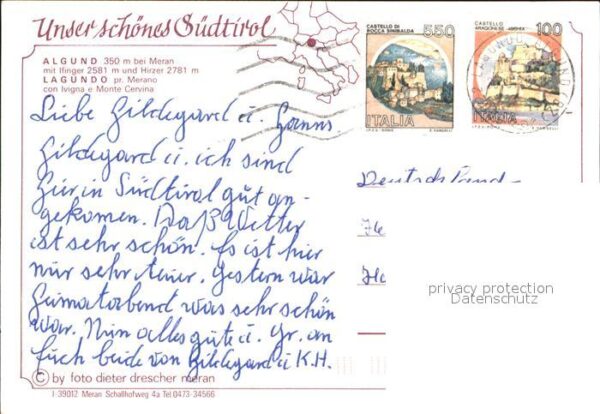 Unser schönes Südtirol
ALGUND 350 m bei Meran
mit Ifinger 2581 m und Hirzer 2781 m
LAGUNDO pr. Merano
con Ivigna e Monte Cervina
CASTELLO DI
ROCCA SINIBALDA
550
I.P.Z.S. - ROMA
ITALIA
CASTELLO
ARAGONESE - ISCHIA
100
ITALIA
Liebe Hildegard u. Hanns
Hildegard u. ich sind
hier in Südtirol gut an-
gekommen. Daß Wetter
ist sehr schön. Es ist hier
nur sehr teuer. Gestern war
Heimatabend was sehr schön
war. Nun alles gute u. Gr. an
Euch beide von Hildegard u K.H.
Deutschland-
privacy protection
Datenschutz
© by foto dieter drescher meran
I 39012 Meran Schallhofweg 4a Tel 0473-34566